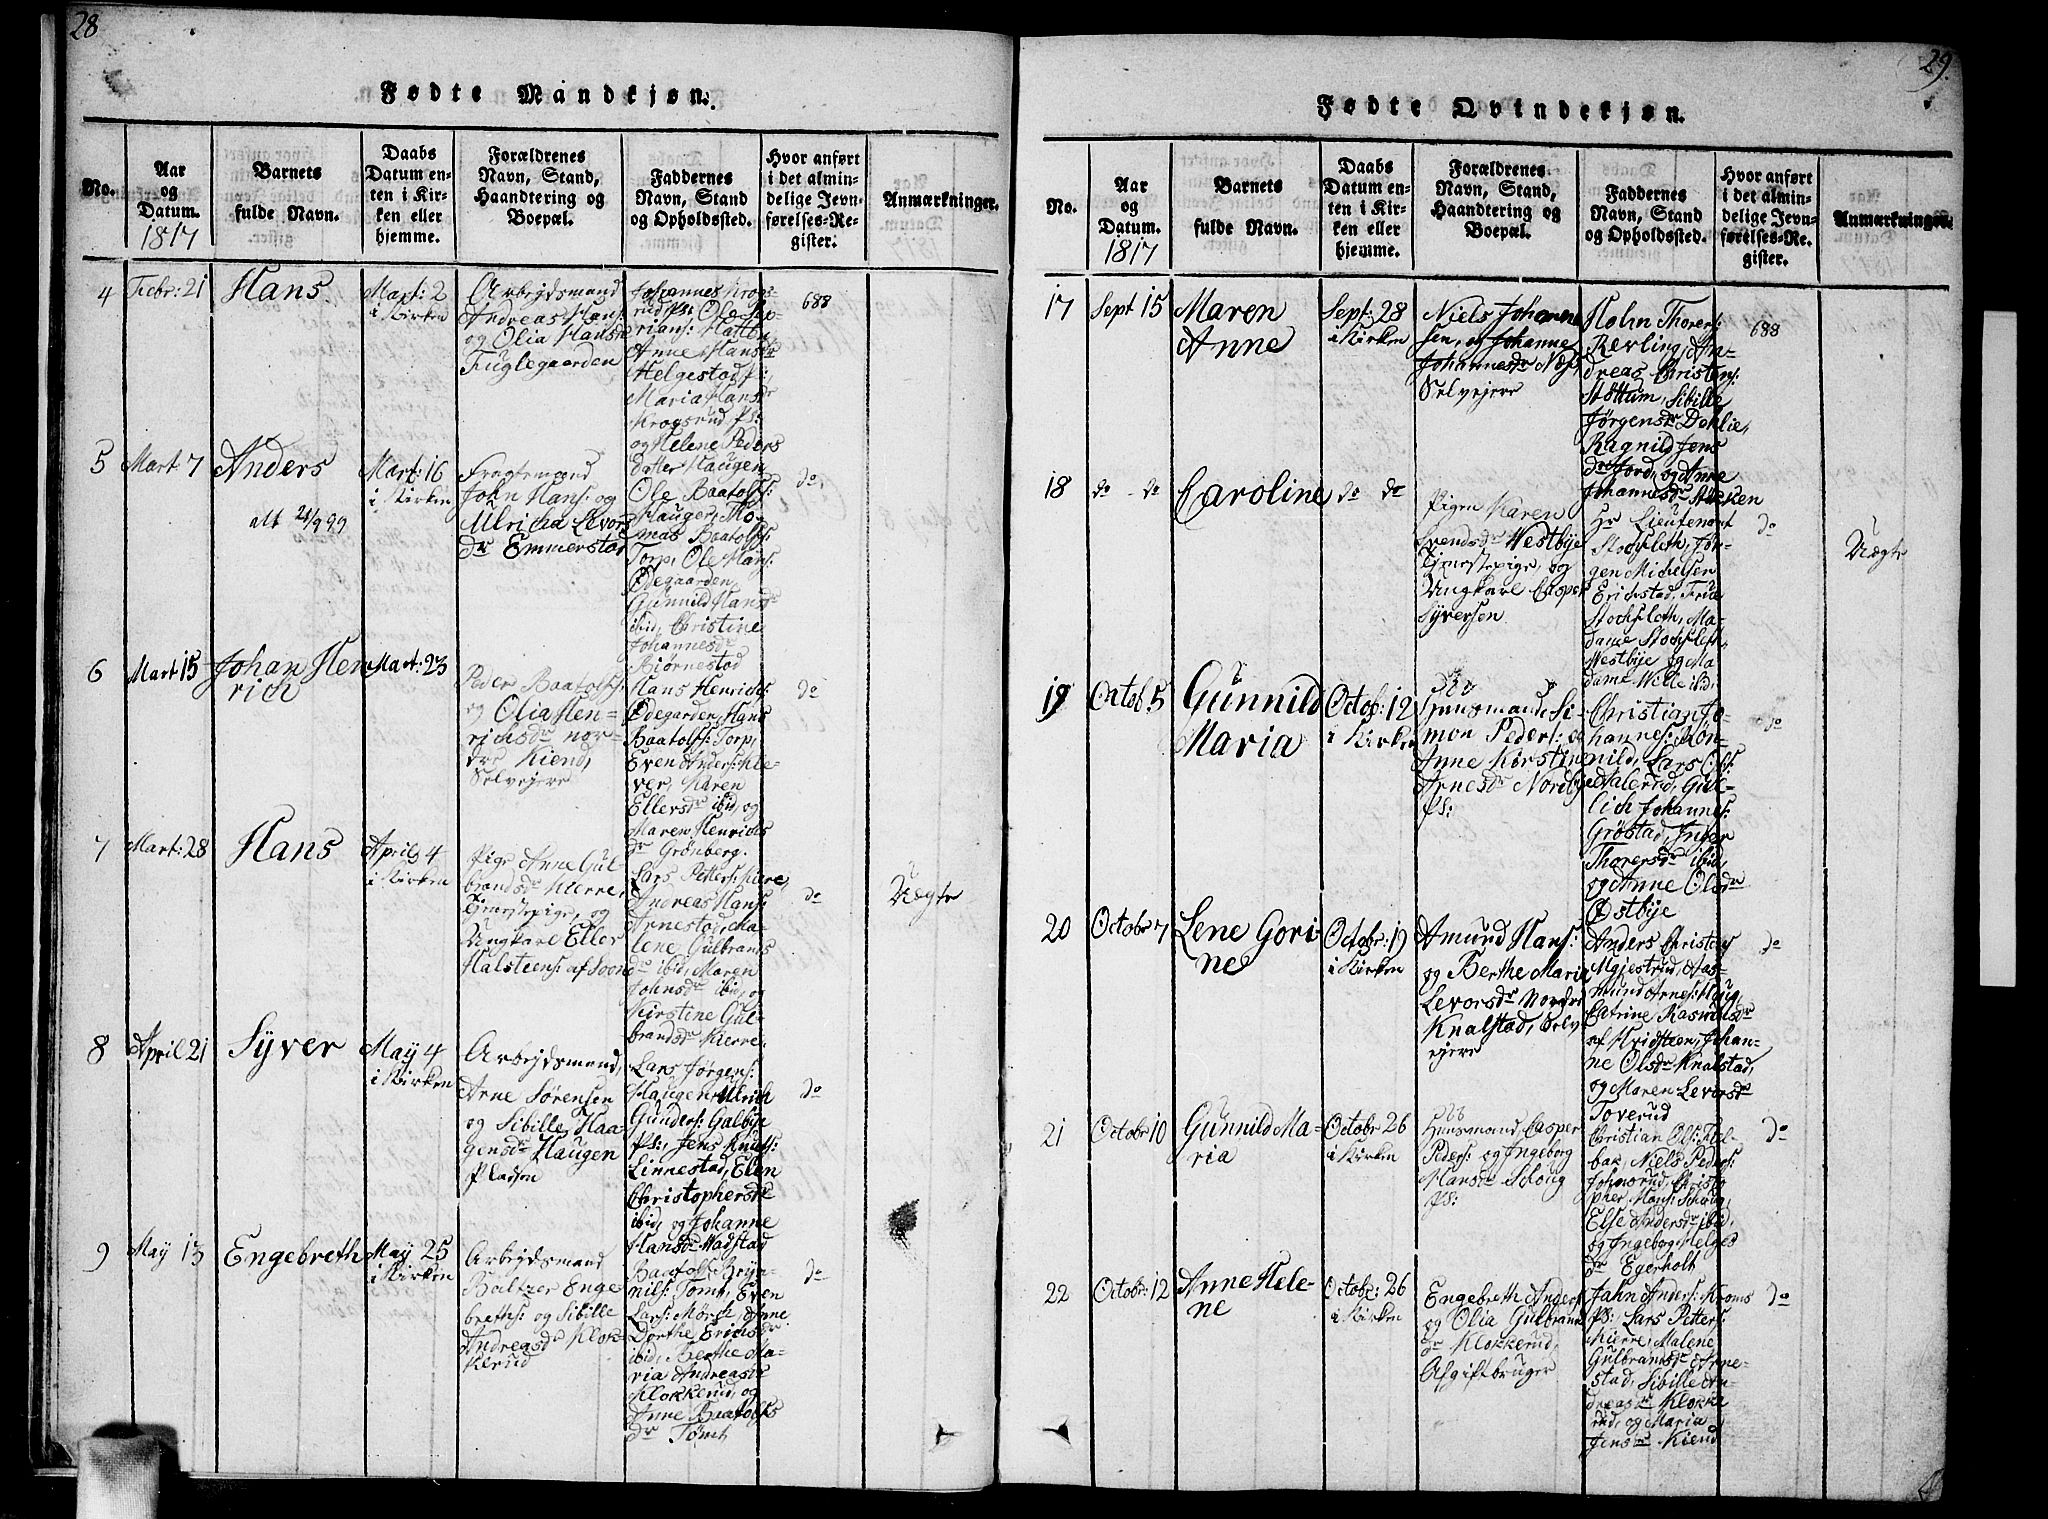 28
Fødte Mandkjøn.
No.
Aar
og
Datum.
1817
Barnets
fulde Navn.
Daabs
Datum en-
ten i Kir-
ken eller
hjemme.
Forældrenes
Navn, Stand,
Haandtering og
Boepæl.
Faddernes
Navn, Stand
og Opholdssted.
Hvor anført
i det almin-
delige Jevn-
førelses-Re-
gister.
Anmærkninger.
4
Febr: 21
Hans.
Mart: 2
i Kirken
Arbejdsmand
Andreas Hans:
og Olia Hansdr
Fuglegaarden
Johannes Krogs-
rud Ps: Ole Sÿp-
rians: Hatten
Anne Hansdr
Helgestad Ps:
Maria Hansdr
Krogsrud Ps:
og Helene Peders
datter Haugen
688
5
Mart 7
Anders
att 21/9 99
Mart: 16
i Kirken
Fragtemand
John Hans: og
Ulricha Levors
dr Emmerstad
Ole Baatolfs:
Hauger, Tho-
mas Baatolfs:
Torp, Ole Hans:
Ødegaarden
Gunnild Hansdr
ibid, Christine
Johannesdr
Bjørnestad
do
6
Mart 15
Johan Hen
rich
Mart: 23
Peder Baatolfs:
og Olia Hen-
richsdr nor-
dre Kiend,
Selvejere
Hans Henrichs:
Ødegarden, Hans
Baatolfs: Torp,
Even Anders: Kle-
ver, Karen
Ellersdr ibid, og
Maren Henrichs
dr Grønberg.
do
7
Mart: 28
Hans
April 4
i Kirken
Pige Anne Gul-
brandsdr Kierre,
Tjenestepige, og
Ungkarl Eller
Halsteens: af Soon
Lars Petters: Kiere,
Andreas Hans:
Arnestad, Ma-
lene Gulbrands
dr ibid, Maren
Johnsdr ibid, og
Kirstine Gul-
brandsdr Kierre.
do
Uægte
8
April 21
Syver
May 4
i Kirken
Arbejdsmand,
Arne Sørensen
og Sibille Haa-
gensdr Haugen
Pladsen
Lars Jørgens:
Haugen, Ulrich
Gunders: Galbye
Ps: Jens Knuds:
Linnestad, Elen
Christophersdr
ibid, og Johanne
Hansdr Wadstad
do
9
May 13
Engebreth
May 25
i Kirken
Arbejdsmand
Baltzer Enge
breths: og Sibille
Andreasdr Klok-
kerud
Baatolf Bryn-
nils: Tomt, Even
Lars: Mørch, Anne
Dorthe Erichsdr
ibid, Berthe Ma-
ria Andreasdr
Klokkerud, og
Anne Baatolfs
dr Tømt
do
29.
Fødte Qvindekjøn.
No.
Aar
og
Datum.
1817
Barnets
fulde Navn.
Daabs
Datum en-
ten i Kir-
ken eller
hjemme.
Forældrenes
Navn, Stand,
Haandtering og
Boepæl.
Faddernes
Navn, Stand
og Opholdssted.
Hvor anført
i det almin-
delige Jevn-
førelses-Re-
gister.
Anmærkninger.
17
Sept 15
Maren
Anne
Sept: 28
i Kirken
Niels Johanne
sen, og Johanne
Johannesdr Næss
Selvejere
John Thorers:
Revling, An-
dreas Christens:
Støttum, Sibille
Jørgensdr Dehlie,
Ragnild Jens
dr Fjord, og Anne
Johannesdr
688
18
do do
Caroline
do do
Pigen Karen
Svendsdr Westbye
Tjenestepige, og
Ungkarl Casper
Syversen
Hr Lieutenant
Stochfleth, Jør-
gen Michelsen
Erichstad, Frue
Stochfleth, Ma-
dame Stochfleth
Westbye og Ma-
dame Wille ibid,
do
Uægte
19
Octob: 5
Gunnild
Maria
Octob: 12
i Kirken
Huusmand Si-
mon Peders: og
Anne Kirstine
Arnesdr Nordbye
Ps:
Christian Jo-
hannes: Mon-
nild, Lars Ols:
Halerud, Gul-
lich Johannes:
Grøstad, Inger
Thorersdr ibid,
og Anne Olsdr
Østbye
do
20
Octobr 7
Lene Gori-
ne
Octobr: 19
i Kirken
Amund Hans:
og Berthe Maria
Levorsdr Nordre
Knalstad, Selv
ejere
Anders Christens
Mjestrud, Aas-
mund Arnes: Haug,
Catrine Rasmusdr
af Hvidsteen, Johan-
ne Olsdr Knalstad,
og Maren Levorsdr
Toverud
do
21
Octobr 10
Gunnild Ma-
ria
Octobr 26
i Kirken
Huusmand Casper
Peders: og Ingeborg
Hansdr Schoug
Ps:
Christian Ols: Hol-
bak, Niels Peders:
Johnsrud, Christo
pher Hans: Schoug,
Else Andersdr ibid,
og Ingeborg Helges
dr Egerholt
do
22
Octobr: 12
Anne Hele-
ne
Octobr: 26
i Kirken
Engebreth Anders:
og Olia Gulbrans
dr Klokkerud,
Afgiftbruger
Jahn Anders: Kroms
Ps: Lars Petters:
Kierre, Malene
Gulbransdr Arne-
stad, Sibille An-
dreasdr Klokke
rud, og Maria
Jensdr Kiend
do